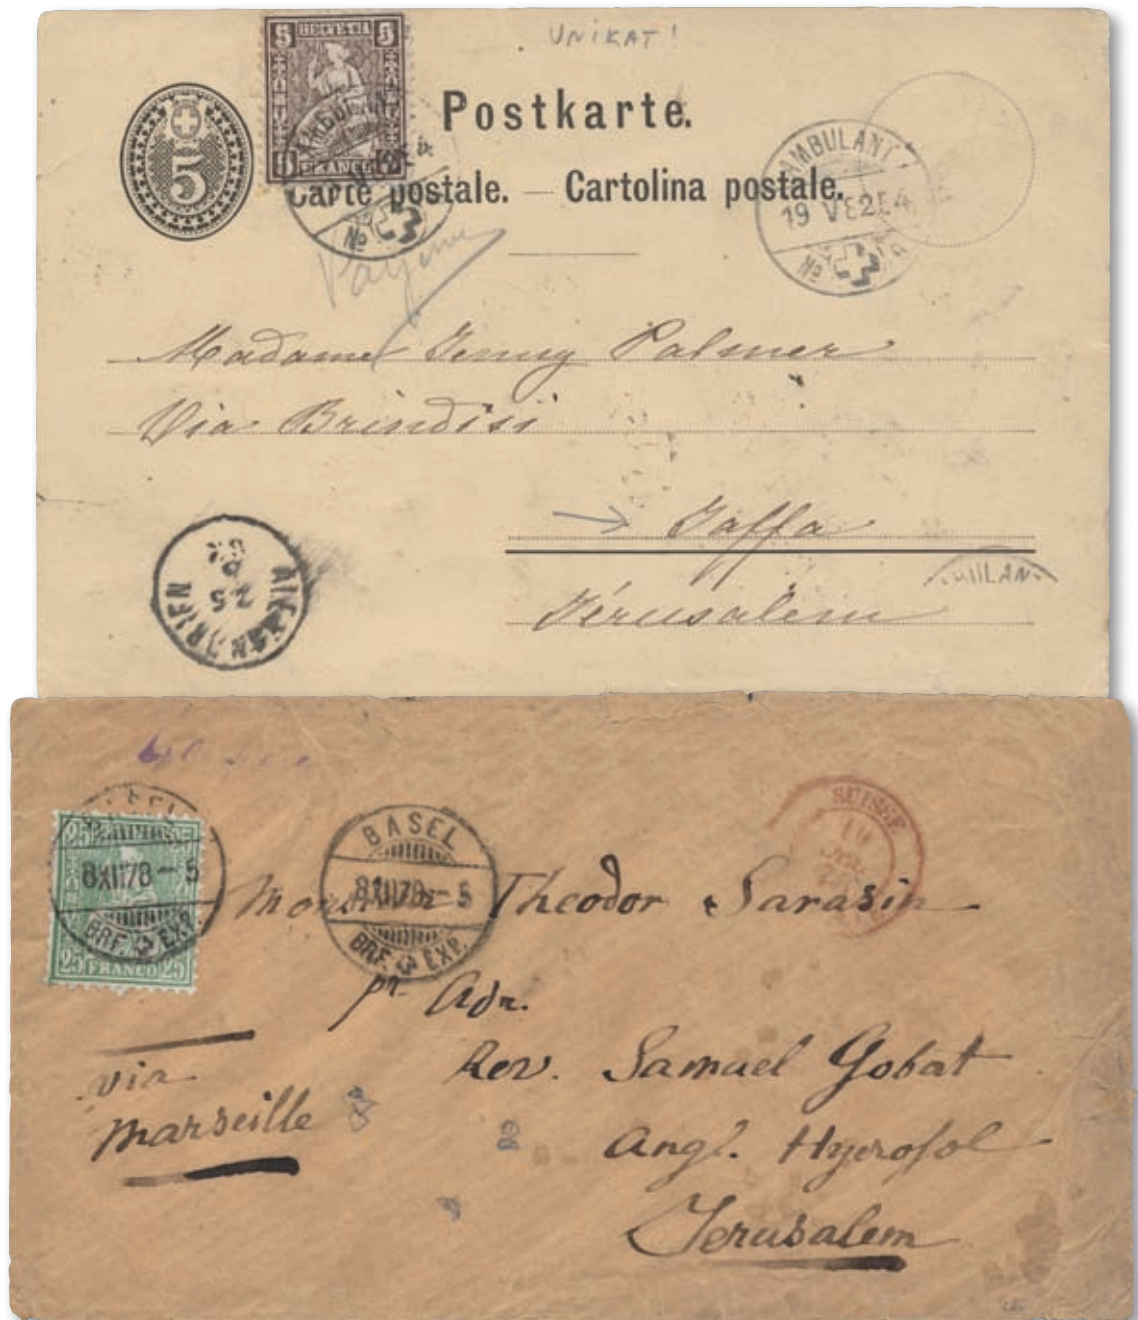 UNIKAT!
5 HELVETIA 5
FRANCO
5
Postkarte.
Carte postale. — Cartolina postale.
AMBULANT
19 V 82
No
No
Madame Jenny Palmer
Via Brindisi
Jaffa
Jérusalem
MILAN
25
5
82
BASEL
8 XII 78 - 5
BRF. EXP.
25 25
25 FRANCO 25
BASEL
8 XII 78 - 5
BRF. EXP.
SUISSE
Monsieur Theodor Sarasin
pr. Adr.
Rev. Samuel Gobat
Angl. Hyerosol
Jerusalem
via
Marseille